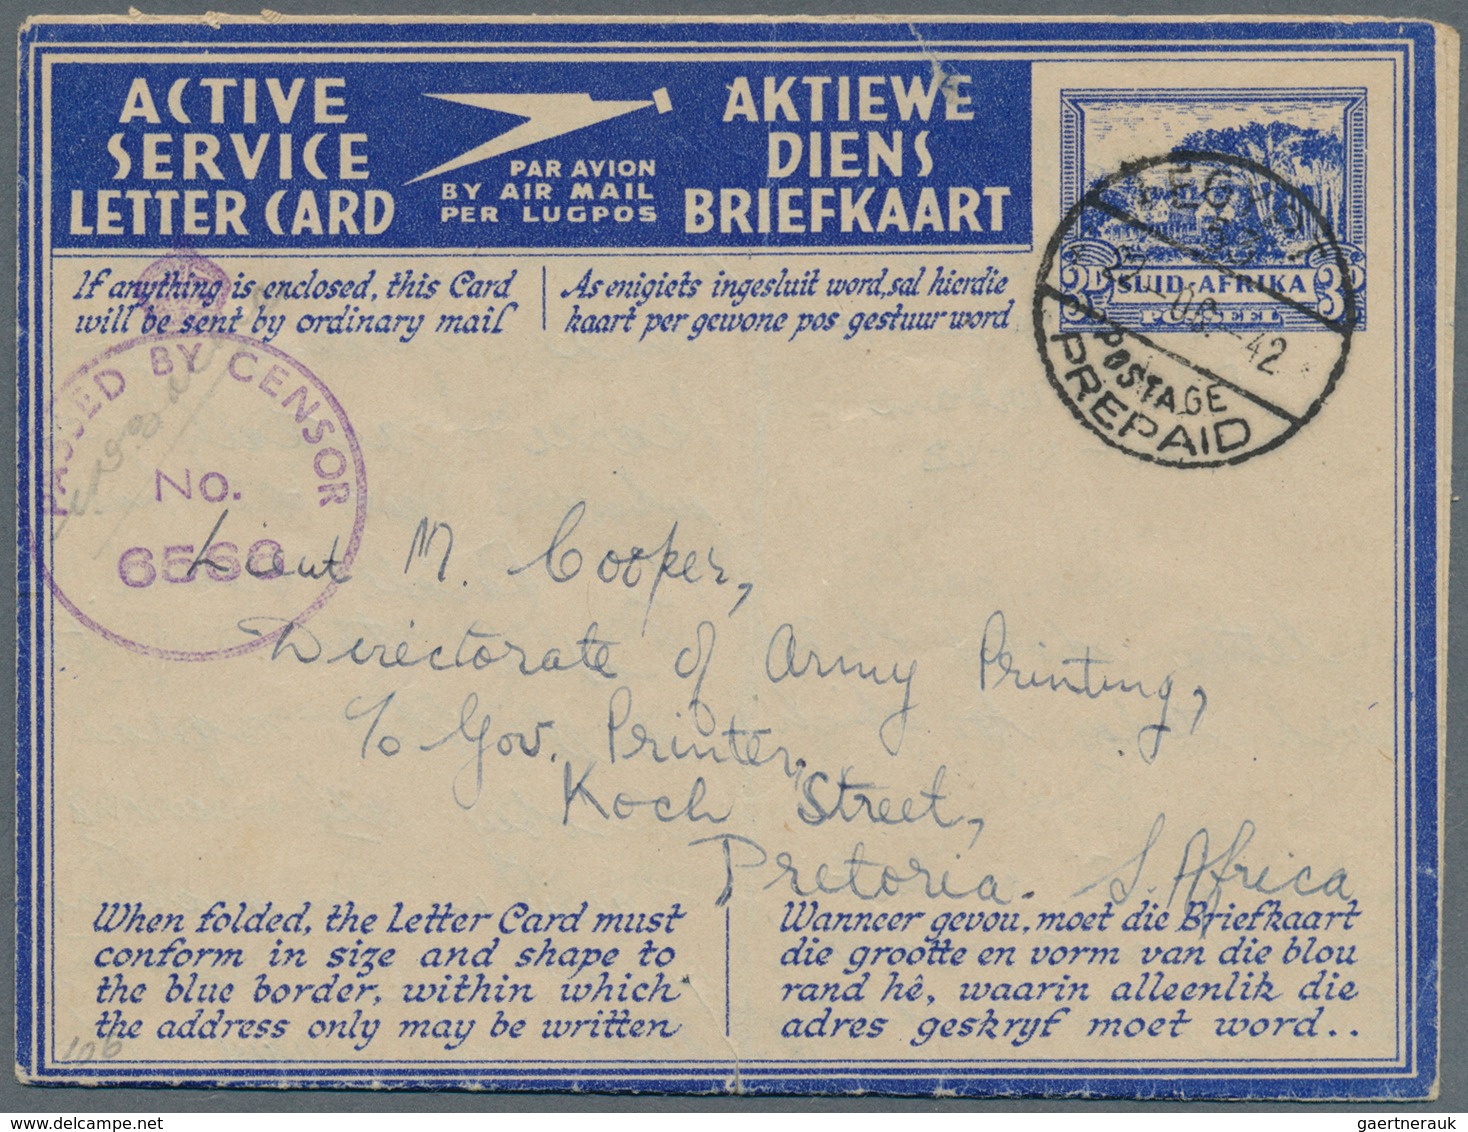 ACTIVE
SERVICE
LETTER CARD
PAR AVION
BY AIR MAIL
PER LUGPOS
AKTIEWE
DIENS
BRIEFKAART
If anything is enclosed, this Card
will be sent by ordinary mail
As enigiets ingesluit word, sal hierdie
kaart per gewone pos gestuur word
SUID-AFRIKA
POSSEËL
EGYPT
42
POSTAGE
PREPAID
PASSED BY CENSOR
No.
Lieut M. Cooper,
Directorate of Army Printing,
c/o Gov. Printer,
Koch Street,
Pretoria. S. Africa
When folded, the Letter Card must
conform in size and shape to
the blue border, within which
the address only may be written
Wanneer gevou, moet die Briefkaart
die grootte en vorm van die blou
rand hê, waarin alleenlik die
adres geskryf moet word..
106
gaertnerauk@www.delcampe.net